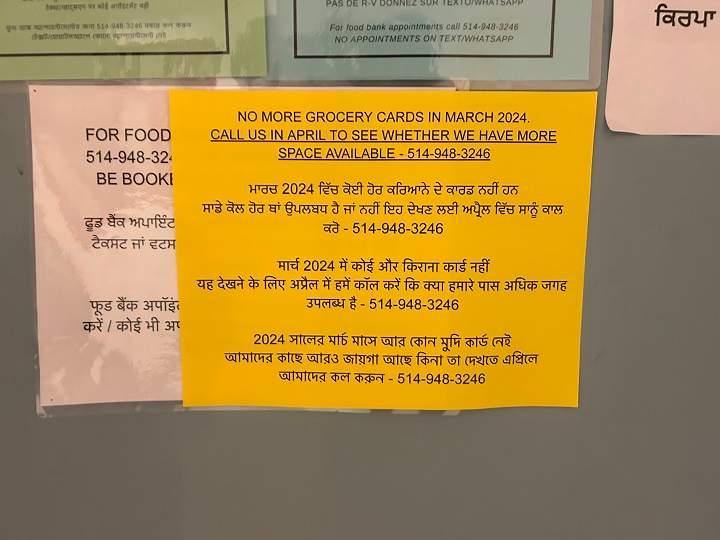 फूड बैंक
কল করুন
PAS DE R-V DONNEZ SUR TEXTO/WHATSAPP
For food bank appointments call 514-948-3246
NO APPOINTMENTS ON TEXT/WHATSAPP
ਕਿਰਪਾ
FOR FOOD
514-948-324
BE BOOKE
ਫੂਡ ਬੈਂਕ ਅਪਾਇੰਟ
ਟੈਕਸਟ ਜਾਂ ਵਟਸ
फूड बैंक अपॉइंट
करें / कोई भी अप
NO MORE GROCERY CARDS IN MARCH 2024.
CALL US IN APRIL TO SEE WHETHER WE HAVE MORE
SPACE AVAILABLE - 514-948-3246
ਮਾਰਚ 2024 ਵਿੱਚ ਕੋਈ ਹੋਰ ਕਰਿਆਨੇ ਦੇ ਕਾਰਡ ਨਹੀਂ ਹਨ
ਸਾਡੇ ਕੋਲ ਹੋਰ ਥਾਂ ਉਪਲਬਧ ਹੈ ਜਾਂ ਨਹੀਂ ਇਹ ਦੇਖਣ ਲਈ ਅਪ੍ਰੈਲ ਵਿੱਚ ਸਾਨੂੰ ਕਾਲ
ਕਰੋ - 514-948-3246
मार्च 2024 में कोई और किराना कार्ड नहीं
यह देखने के लिए अप्रैल में हमें कॉल करें कि क्या हमारे पास अधिक जगह
उपलब्ध है - 514-948-3246
2024 সালের মার্চ মাসে আর কোন মুদি কার্ড নেই
আমাদের কাছে আরও জায়গা আছে কিনা তা দেখতে এপ্রিলে
আমাদের কল করুন - 514-948-3246